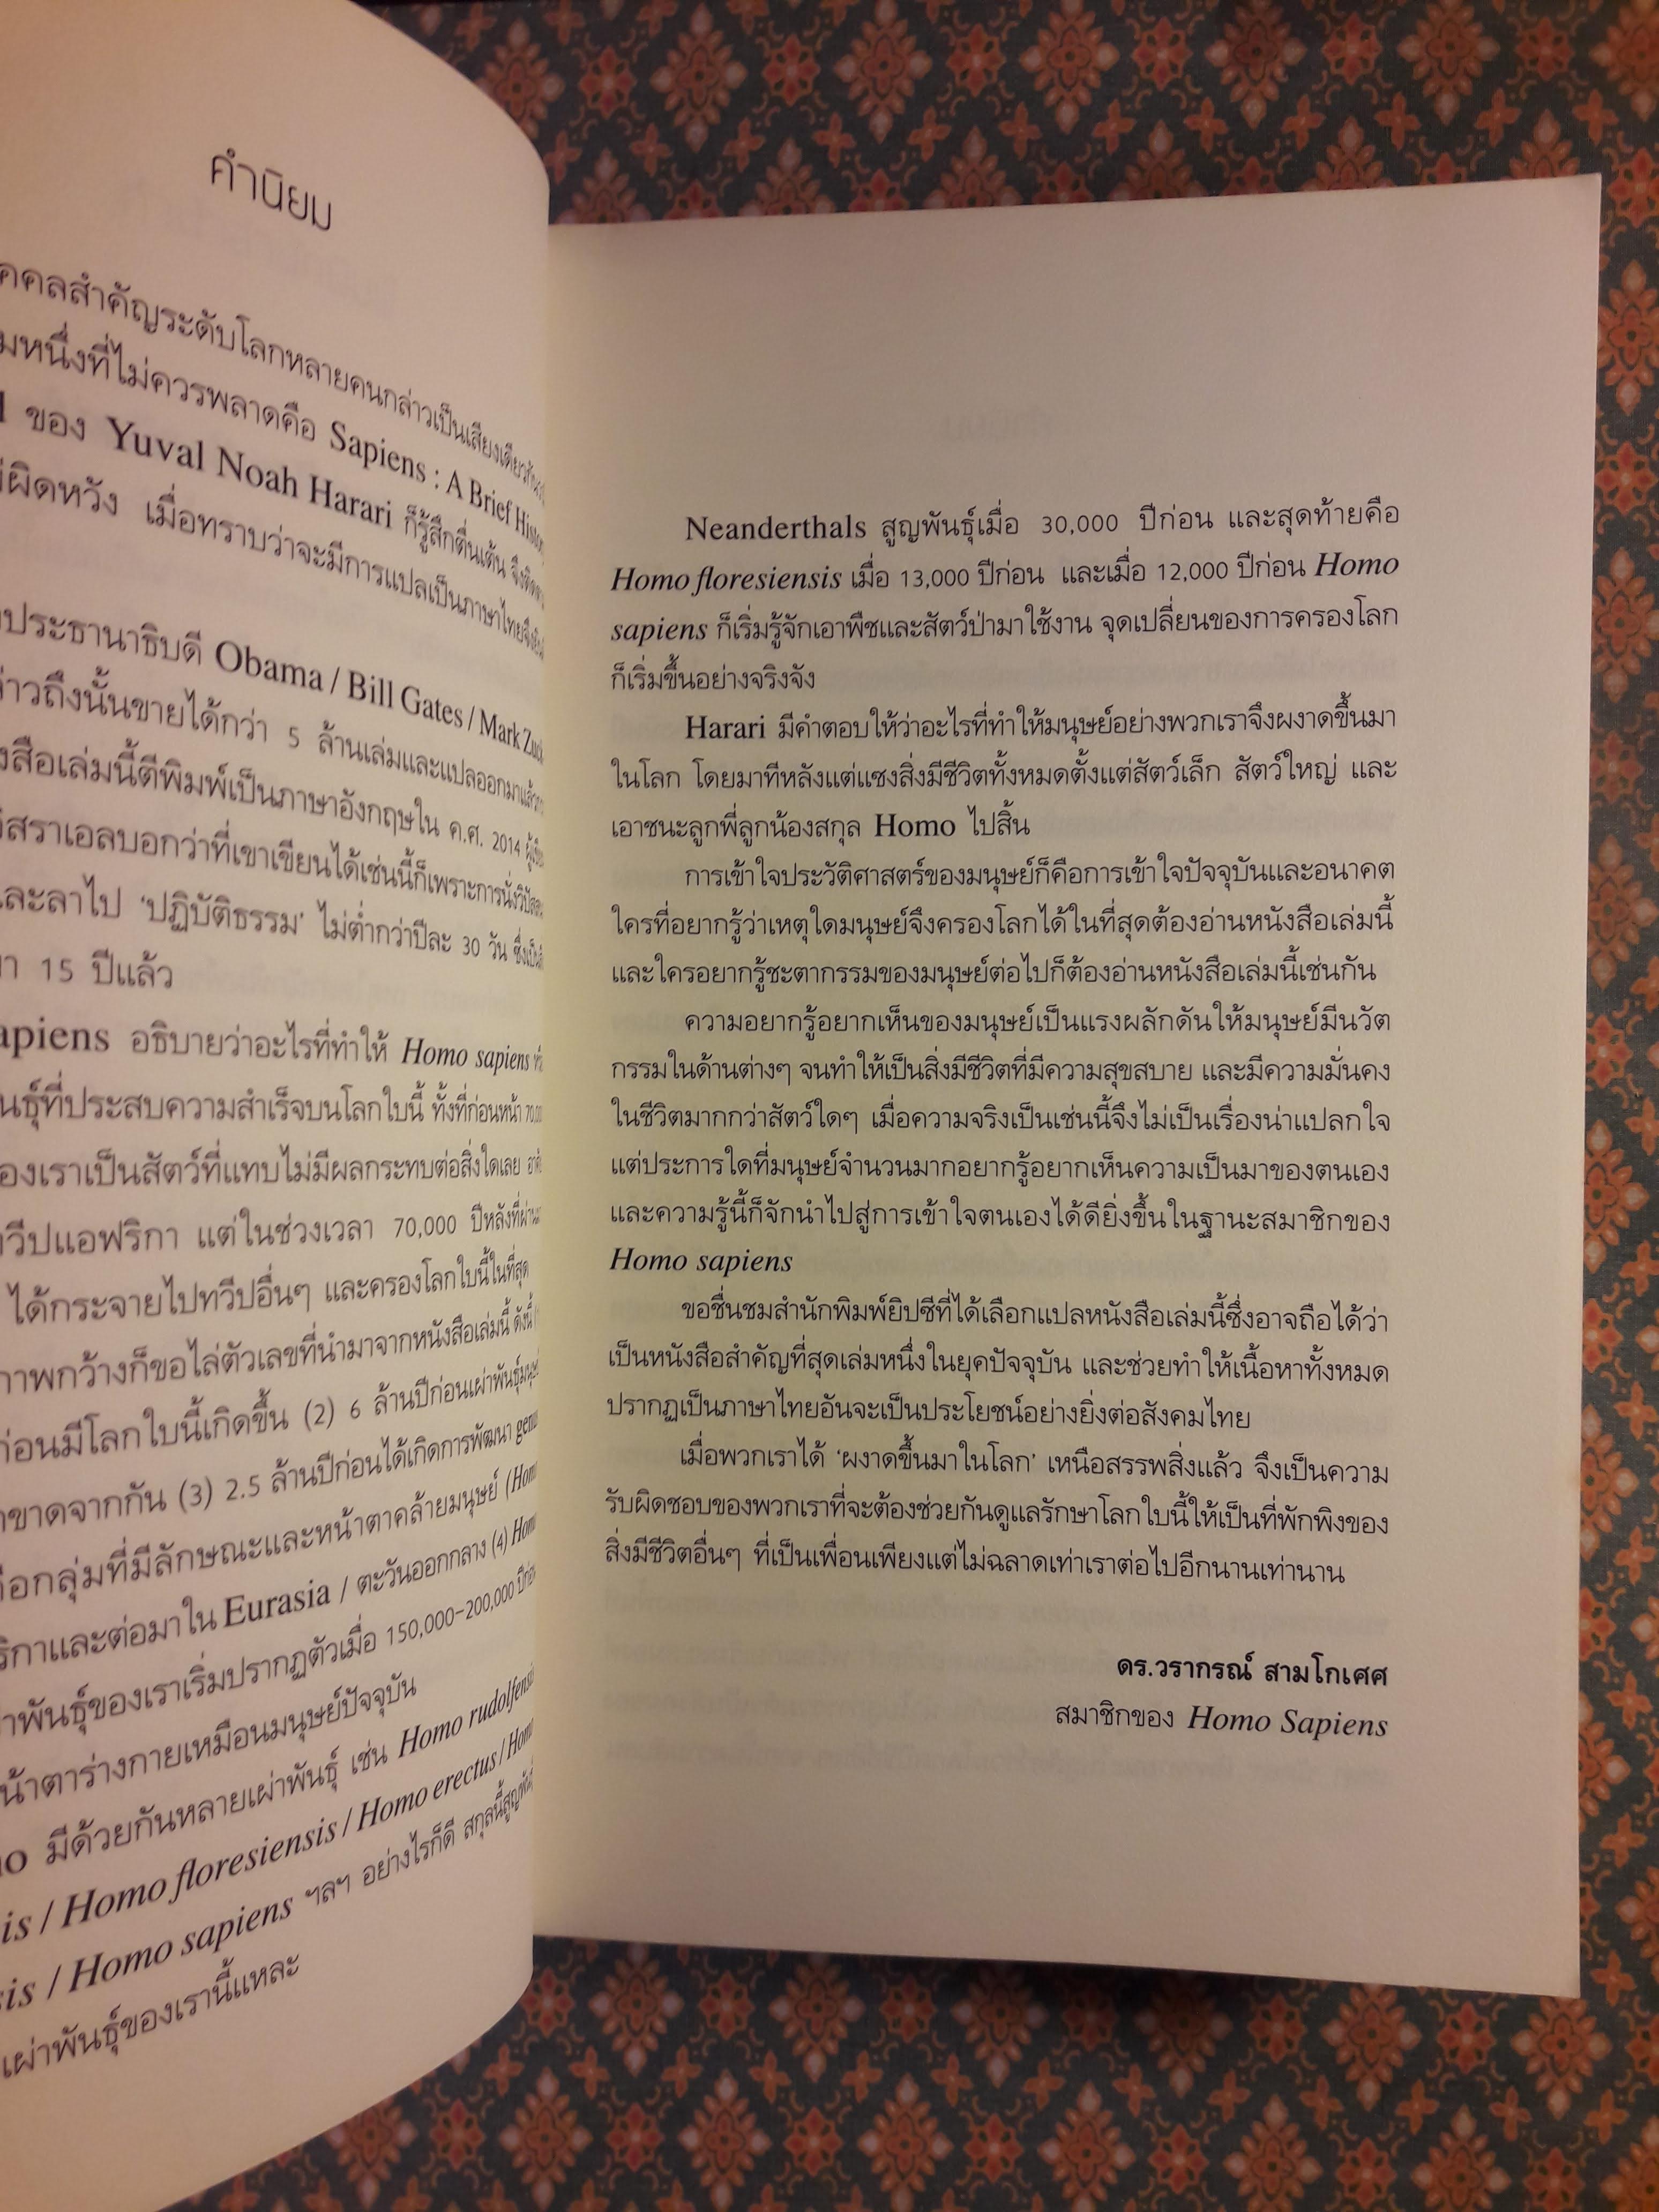 คำนิยม
คคลสำคัญระดับโลกหลายคนกล่าวเป็นเสียงเดียวกัน
มหนึ่งที่ไม่ควรพลาดคือ Sapiens : A Brief Histor
ของ Yuval Noah Harari ก็รู้สึกตื่นเต้น จึงติด
ผิดหวัง เมื่อทราบว่าจะมีการแปลเป็นภาษาไทยจึงยิน
ประธานาธิบดี Obama / Bill Gates / Mark Zuck
าวถึงนั้นขายได้กว่า 5 ล้านเล่มและแปลออกมาแล้ว
งสือเล่มนี้ตีพิมพ์เป็นภาษาอังกฤษใน ค.ศ. 2014 ผู้เขีย
อิสราเอลบอกว่าที่เขาเขียนได้เช่นนี้ก็เพราะการนั่งวิปัสส
และลาไป ‘ปฏิบัติธรรม’ ไม่ต่ำกว่าปีละ 30 วัน ซึ่งเป็น
า 15 ปีแล้ว
apiens อธิบายว่าอะไรที่ทำให้ Homo sapiens
นธุ์ที่ประสบความสำเร็จบนโลกใบนี้ ทั้งที่ก่อนหน้า 70,00
องเราเป็นสัตว์ที่แทบไม่มีผลกระทบต่อสิ่งใดเลย อาศั
วีปแอฟริกา แต่ในช่วงเวลา 70,000 ปีหลังที่ผ่าน
ได้กระจายไปทวีปอื่นๆ และครองโลกใบนี้ในที่สุด
าพกว้างก็ขอไล่ตัวเลขที่นำมาจากหนังสือเล่มนี้ ดังนี้
ก่อนมีโลกใบนี้เกิดขึ้น (2) 6 ล้านปีก่อนเผ่าพันธุ์มนุษ
าขาดจากกัน (3) 2.5 ล้านปีก่อนได้เกิดการพัฒนา genu
คือกลุ่มที่มีลักษณะและหน้าตาคล้ายมนุษย์ (Hom
ริกาและต่อมาใน Eurasia / ตะวันออกกลาง (4) Hom
าพันธุ์ของเราเริ่มปรากฏตัวเมื่อ 150,000-200,000 ปีก่อ
น้าตาร่างกายเหมือนมนุษย์ปัจจุบัน
มีด้วยกันหลายเผ่าพันธุ์ เช่น Homo rudolfensi
is / Homo floresiensis / Homo erectus / Hom
sis / Homo sapiens ฯลฯ อย่างไรก็ดี สกุลนี้สูญพัน
เผ่าพันธุ์ของเรานี้แหละ
Neanderthals สูญพันธุ์เมื่อ 30,000 ปีก่อน และสุดท้ายคือ
Homo floresiensis เมื่อ 13,000 ปีก่อน และเมื่อ 12,000 ปีก่อน Homo
sapiens ก็เริ่มรู้จักเอาพืชและสัตว์ป่ามาใช้งาน จุดเปลี่ยนของการครองโลก
ก็เริ่มขึ้นอย่างจริงจัง
Harari มีคำตอบให้ว่าอะไรที่ทำให้มนุษย์อย่างพวกเราจึงผงาดขึ้นมา
ในโลก โดยมาทีหลังแต่แซงสิ่งมีชีวิตทั้งหมดตั้งแต่สัตว์เล็ก สัตว์ใหญ่ และ
เอาชนะลูกพี่ลูกน้องสกุล Homo ไปสิ้น
การเข้าใจประวัติศาสตร์ของมนุษย์ก็คือการเข้าใจปัจจุบันและอนาคต
ใครที่อยากรู้ว่าเหตุใดมนุษย์จึงครองโลกได้ในที่สุดต้องอ่านหนังสือเล่มนี้
และใครอยากรู้ชะตากรรมของมนุษย์ต่อไปก็ต้องอ่านหนังสือเล่มนี้เช่นกัน
ความอยากรู้อยากเห็นของมนุษย์เป็นแรงผลักดันให้มนุษย์มีนวัต
กรรมในด้านต่างๆ จนทำให้เป็นสิ่งมีชีวิตที่มีความสุขสบาย และมีความมั่นคง
ในชีวิตมากกว่าสัตว์ใดๆ เมื่อความจริงเป็นเช่นนี้จึงไม่เป็นเรื่องน่าแปลกใจ
แต่ประการใดที่มนุษย์จำนวนมากอยากรู้อยากเห็นความเป็นมาของตนเอง
และความรู้นี้ก็จักนำไปสู่การเข้าใจตนเองได้ดียิ่งขึ้นในฐานะสมาชิกของ
Homo sapiens
ขอชื่นชมสำนักพิมพ์ยิปซีที่ได้เลือกแปลหนังสือเล่มนี้ซึ่งอาจถือได้ว่า
เป็นหนังสือสำคัญที่สุดเล่มหนึ่งในยุคปัจจุบัน และช่วยทำให้เนื้อหาทั้งหมด
ปรากฏเป็นภาษาไทยอันจะเป็นประโยชน์อย่างยิ่งต่อสังคมไทย
เมื่อพวกเราได้ ‘ผงาดขึ้นมาในโลก’ เหนือสรรพสิ่งแล้ว จึงเป็นความ
รับผิดชอบของพวกเราที่จะต้องช่วยกันดูแลรักษาโลกใบนี้ให้เป็นที่พักพิงของ
สิ่งมีชีวิตอื่นๆ ที่เป็นเพื่อนเพียงแต่ไม่ฉลาดเท่าเราต่อไปอีกนานเท่านาน
ดร.วรากรณ์ สามโกเศศ
สมาชิกของ Homo Sapiens